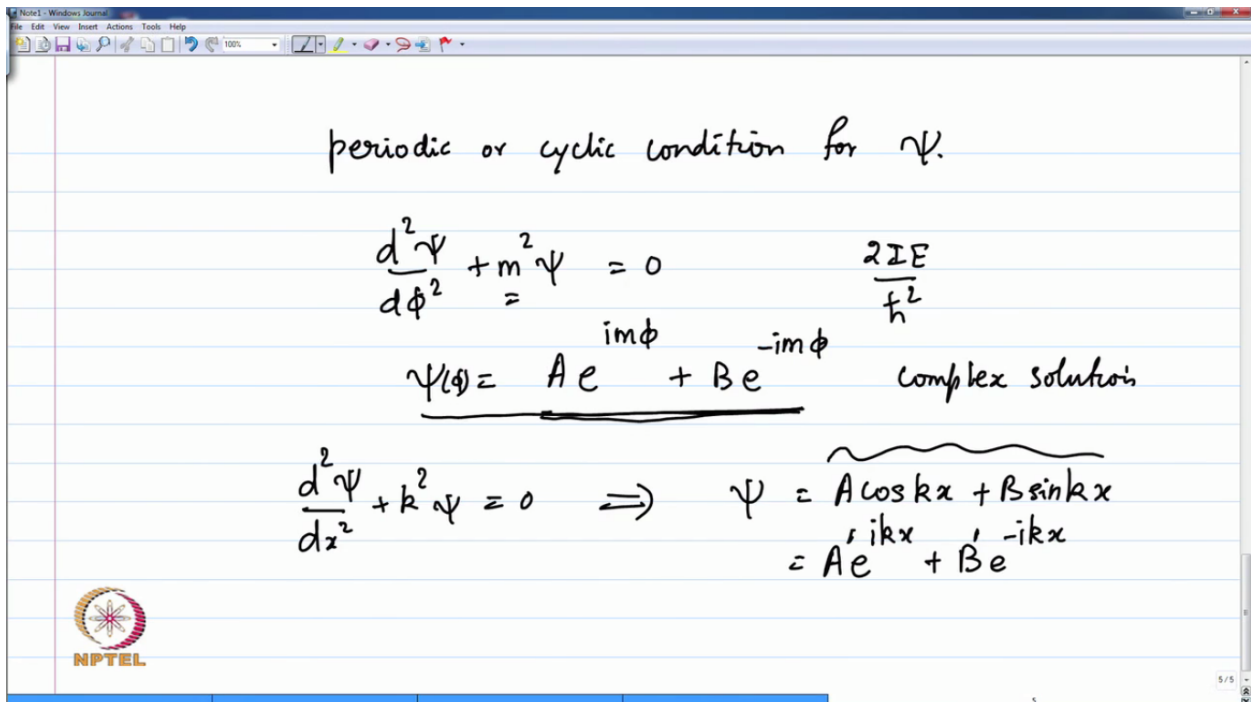 Note1 - Windows Journal
File Edit View Insert Actions Tools Help
100%
periodic or cyclic condition for Ψ.
d²Ψ/dϕ² + m²Ψ = 0
2IE/ħ²
Ψ(ϕ) = A e^{imϕ} + B e^{-imϕ} complex solution
d²Ψ/dx² + k²Ψ = 0 ⟹ Ψ = A cos kx + B sin kx
= A′ e^{ikx} + B′ e^{-ikx}
NPTEL
5/5